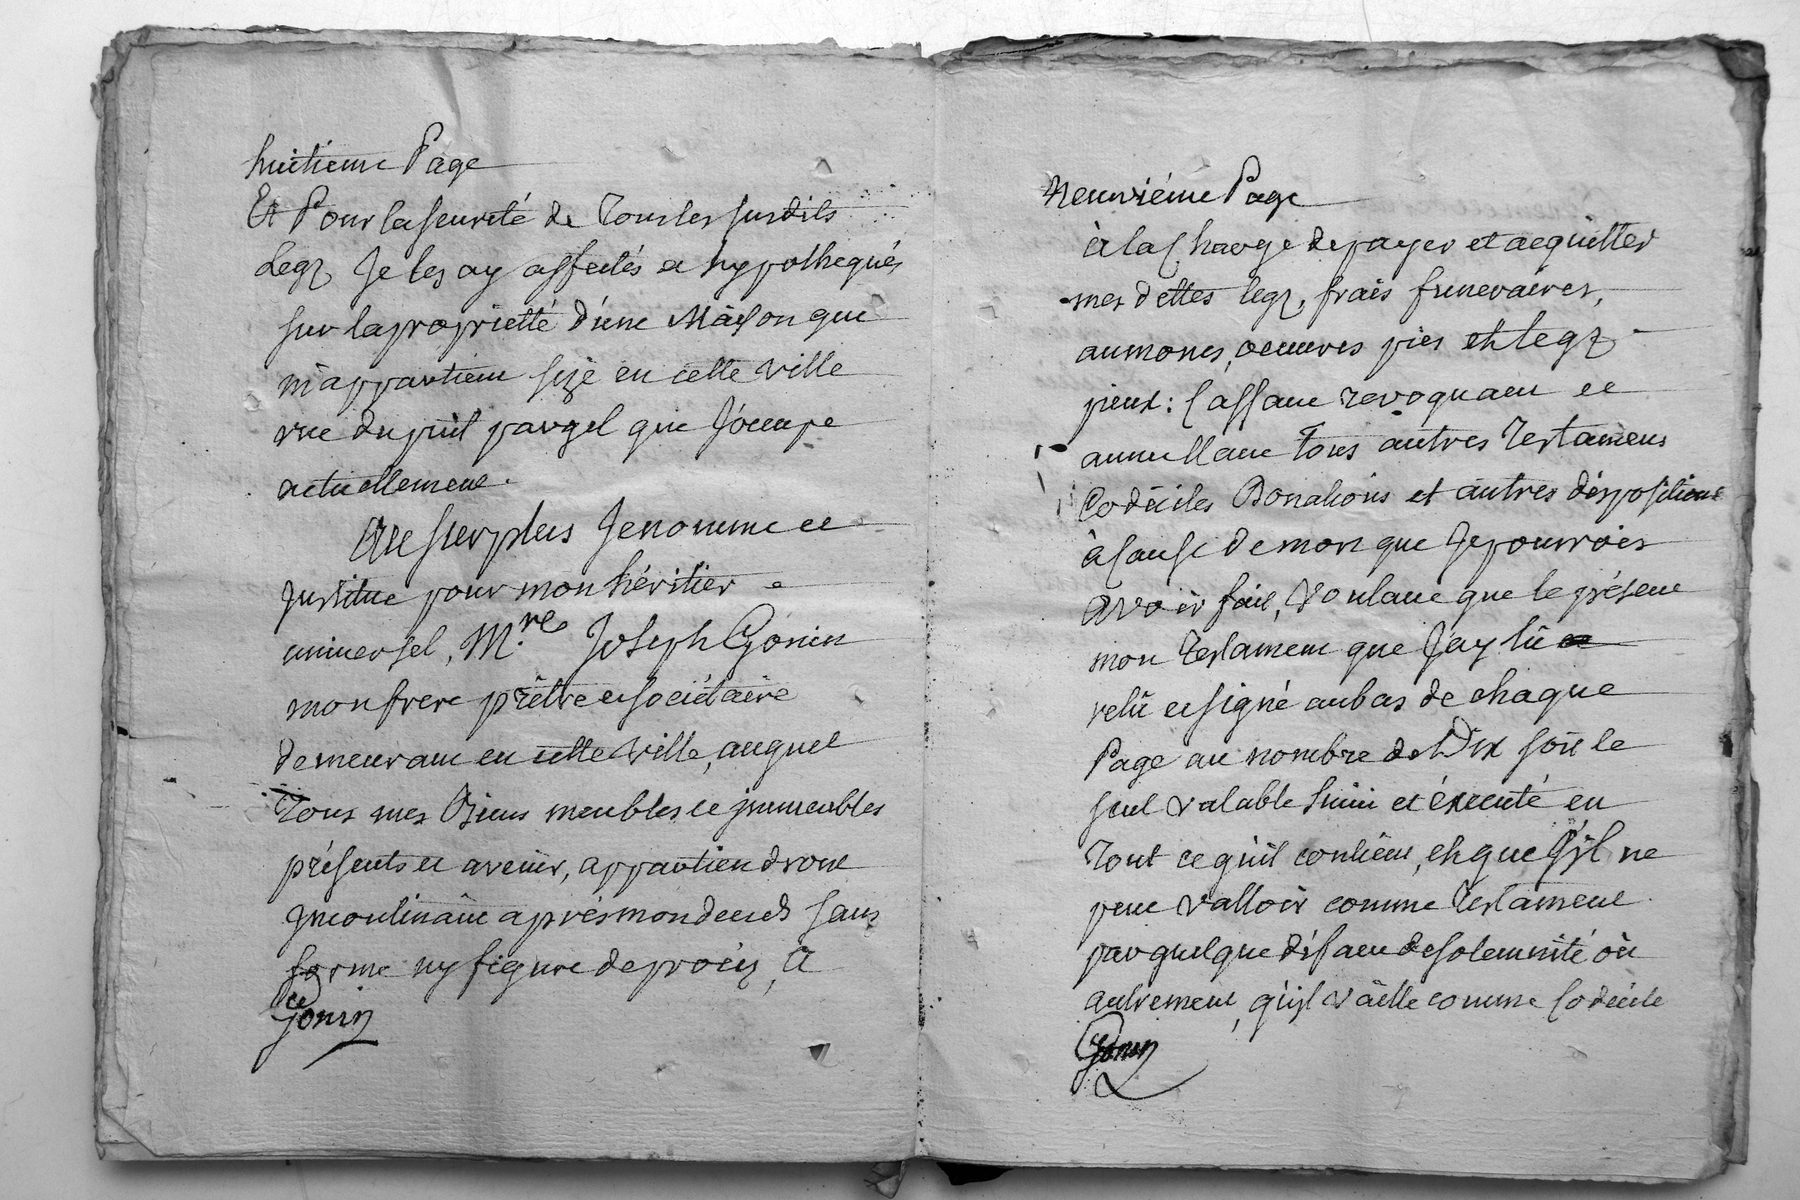 huitieme Page
Et Pour la seureté de Tous les susdits
Legz Je les ay affectés et hypothequés
sur la proprietté d'une Maison que
m'appartient size en cette ville
rue du puit pargel que J'occupe
actuellement.
Au surplus Je nomme et
Institue pour mon héritier
universel, M.re Joseph Gonin
mon frere prêtre et sociétaire
demeurant en cette ville, auquel
Tous mes Biens meubles et jmmeubles
présents et avenir, appartiendront
Jncontinant après mon deceds sans
forme ny figure de procez, a
Gonin
Neuviéme Page
à la Charge de payer et acquitter
mes dettes legz, frais funeraires,
aumones, oeuvres pies et legz
pieux : Cassant revoquant et
annullant Tous autres Testamens
Codiciles Donations et autres dispositions
à Cause de mort que Je pourrois
avoir fait, Voulant que le présent
mon Testament que J'ay lû et
relû et signé au bas de chaque
Page au nombre de Dix soit le
seul valable suivi et éxecuté en
Tout ce qu'il contient, et que s'jl ne
peut valloir comme Testament
par quelque défaut de solemnité où
autrement, qu'jl vaille comme Codicile
Gonin